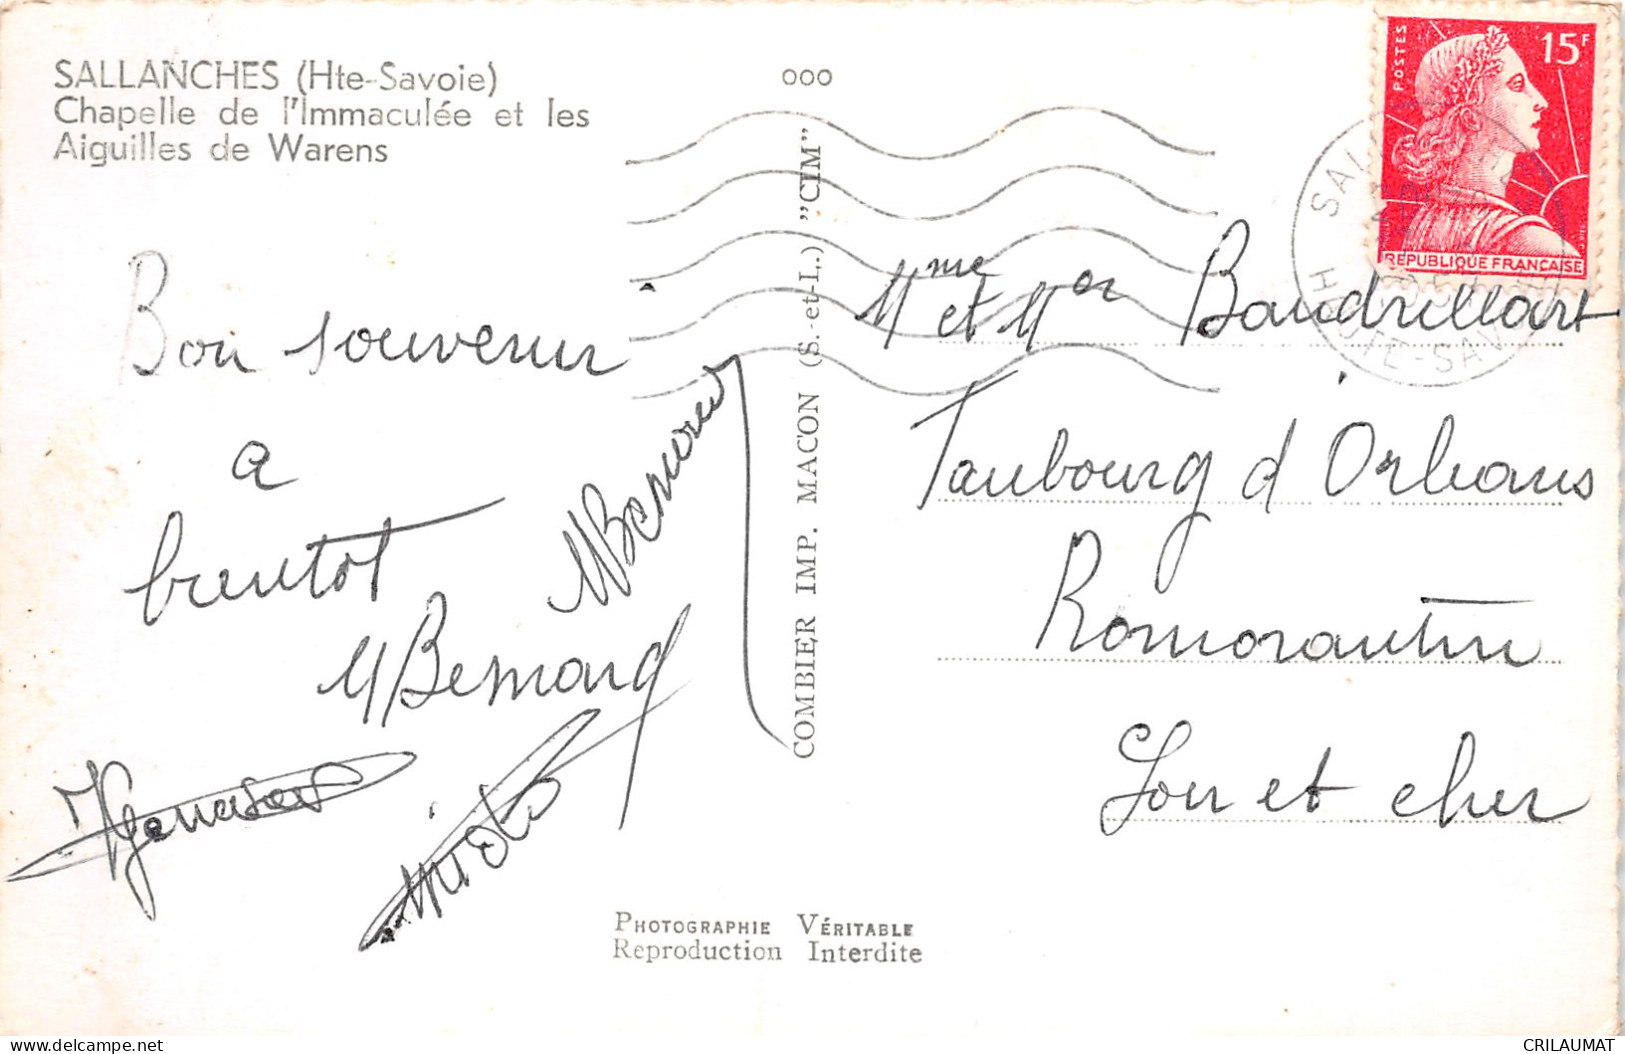 SALLANCHES (Hte-Savoie)
Chapelle de l'Immaculée et les
Aiguilles de Warens
000
POSTES
15F
REPUBLIQUE FRANCAISE
HAUTE-SAV
Bon souvenir
a
bientot
M Bernard
COMBIER IMP. MACON (S.-et-L.) "CIM"
Mme et Mr Baudrillart
Faubourg d'Orleans
Romorantin
Loir et cher
PHOTOGRAPHIE VÉRITABLE
Reproduction Interdite
delcampe.net
CRILAUMAT